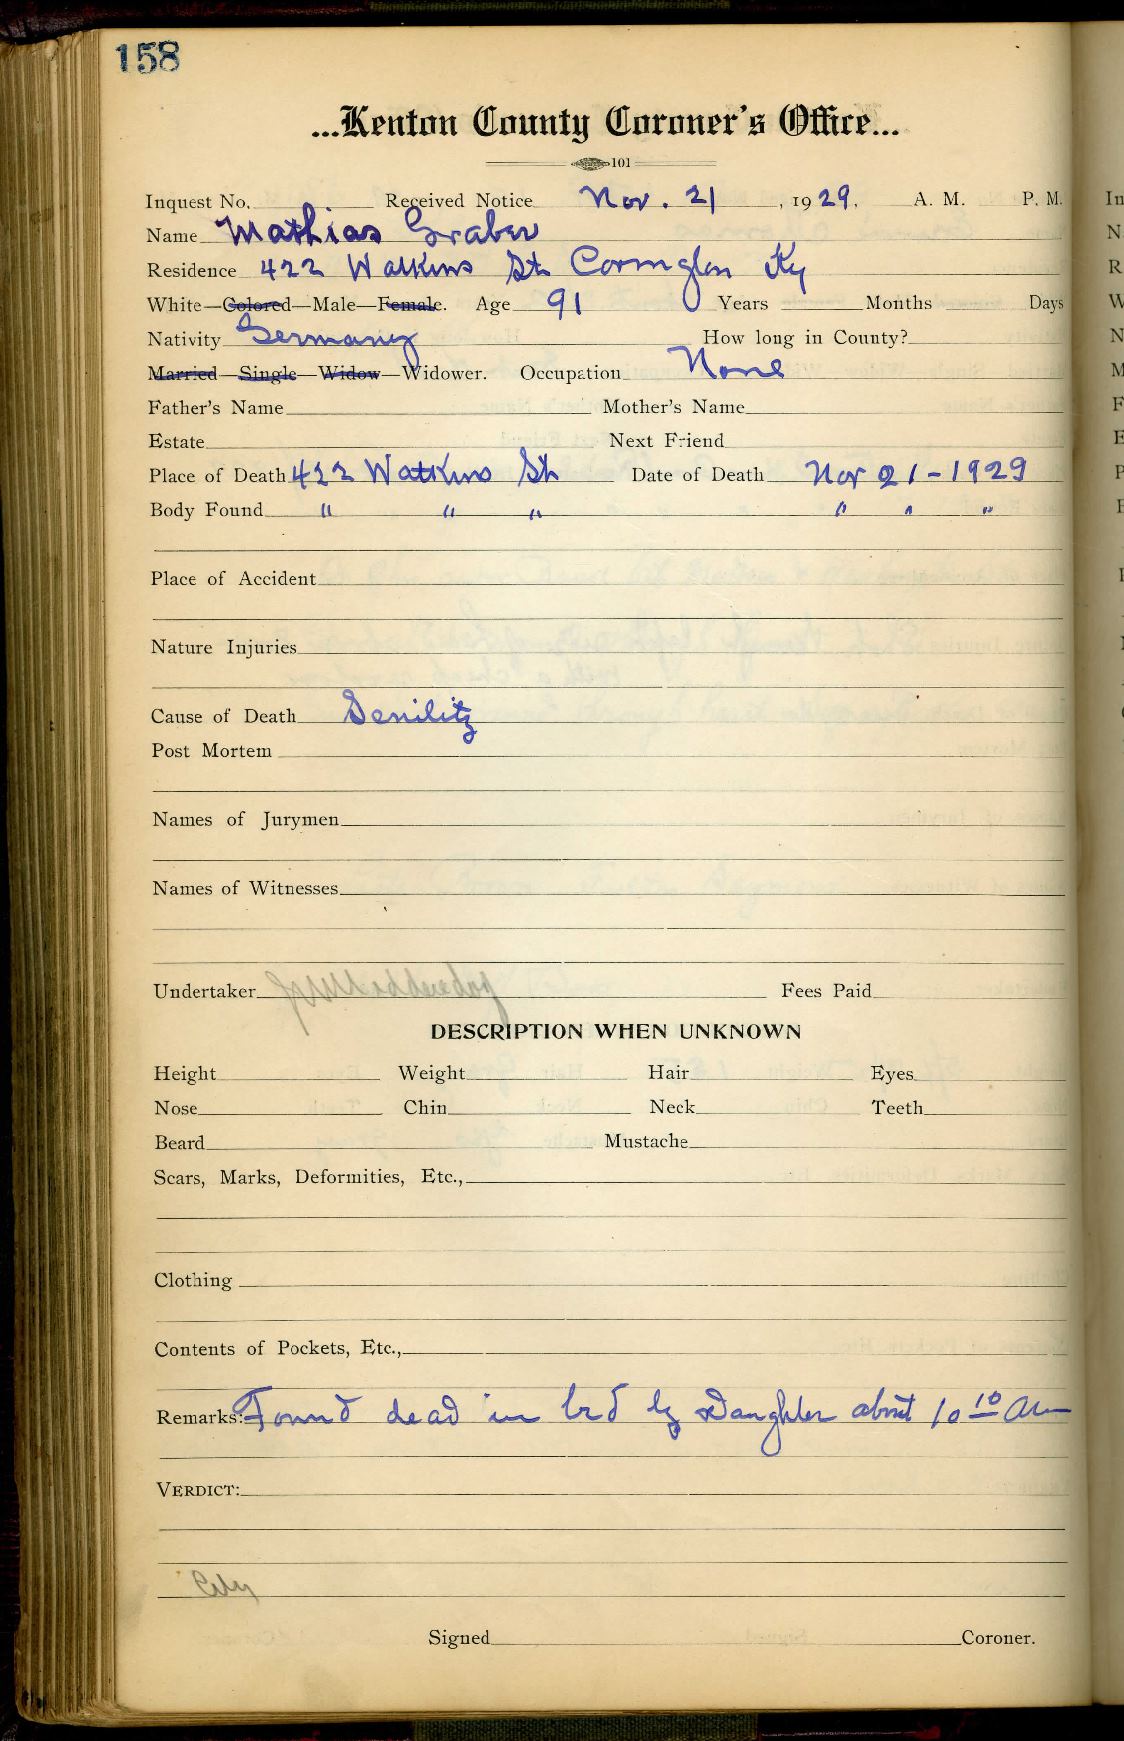 158
...Kenton County Coroner's Office...
101
Inquest No. Received Notice Nov. 21, 1929. A. M. P. M.
Name Mathias Graber
Residence 422 Watkins St Covington Ky
White—Colored—Male—Female. Age 91 Years Months Days
Nativity Germany How long in County?
Married—Single—Widow—Widower. Occupation None
Father's Name Mother's Name
Estate Next Friend
Place of Death 422 Watkins St Date of Death Nov 21-1929
Body Found " " " " " "
Place of Accident
Nature Injuries
Cause of Death Senility
Post Mortem
Names of Jurymen
Names of Witnesses
Undertaker Fees Paid
DESCRIPTION WHEN UNKNOWN
Height Weight Hair Eyes
Nose Chin Neck Teeth
Beard Mustache
Scars, Marks, Deformities, Etc.,
Clothing
Contents of Pockets, Etc.,
Remarks: Found dead in bed by Daughter about 10 10 Am
VERDICT:
City
Signed Coroner.